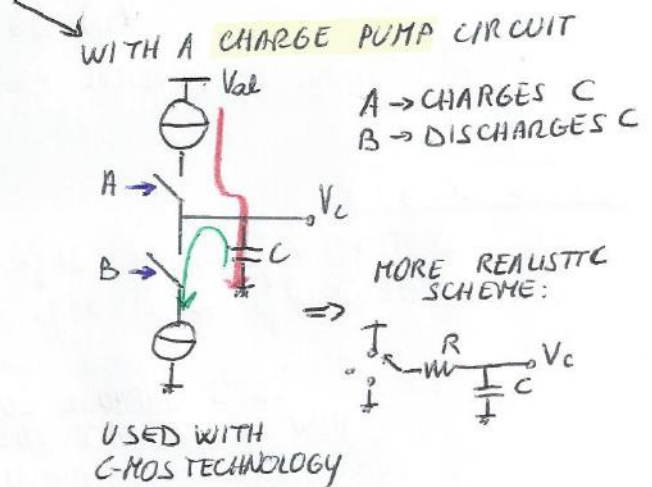 WITH A CHARGE PUMP CIRCUIT
Val
A → CHARGES C
B → DISCHARGES C
A →
Vc
B →
C
MORE REALISTIC
SCHEME:
⇒
R
Vc
C
USED WITH
C-MOS TECHNOLOGY